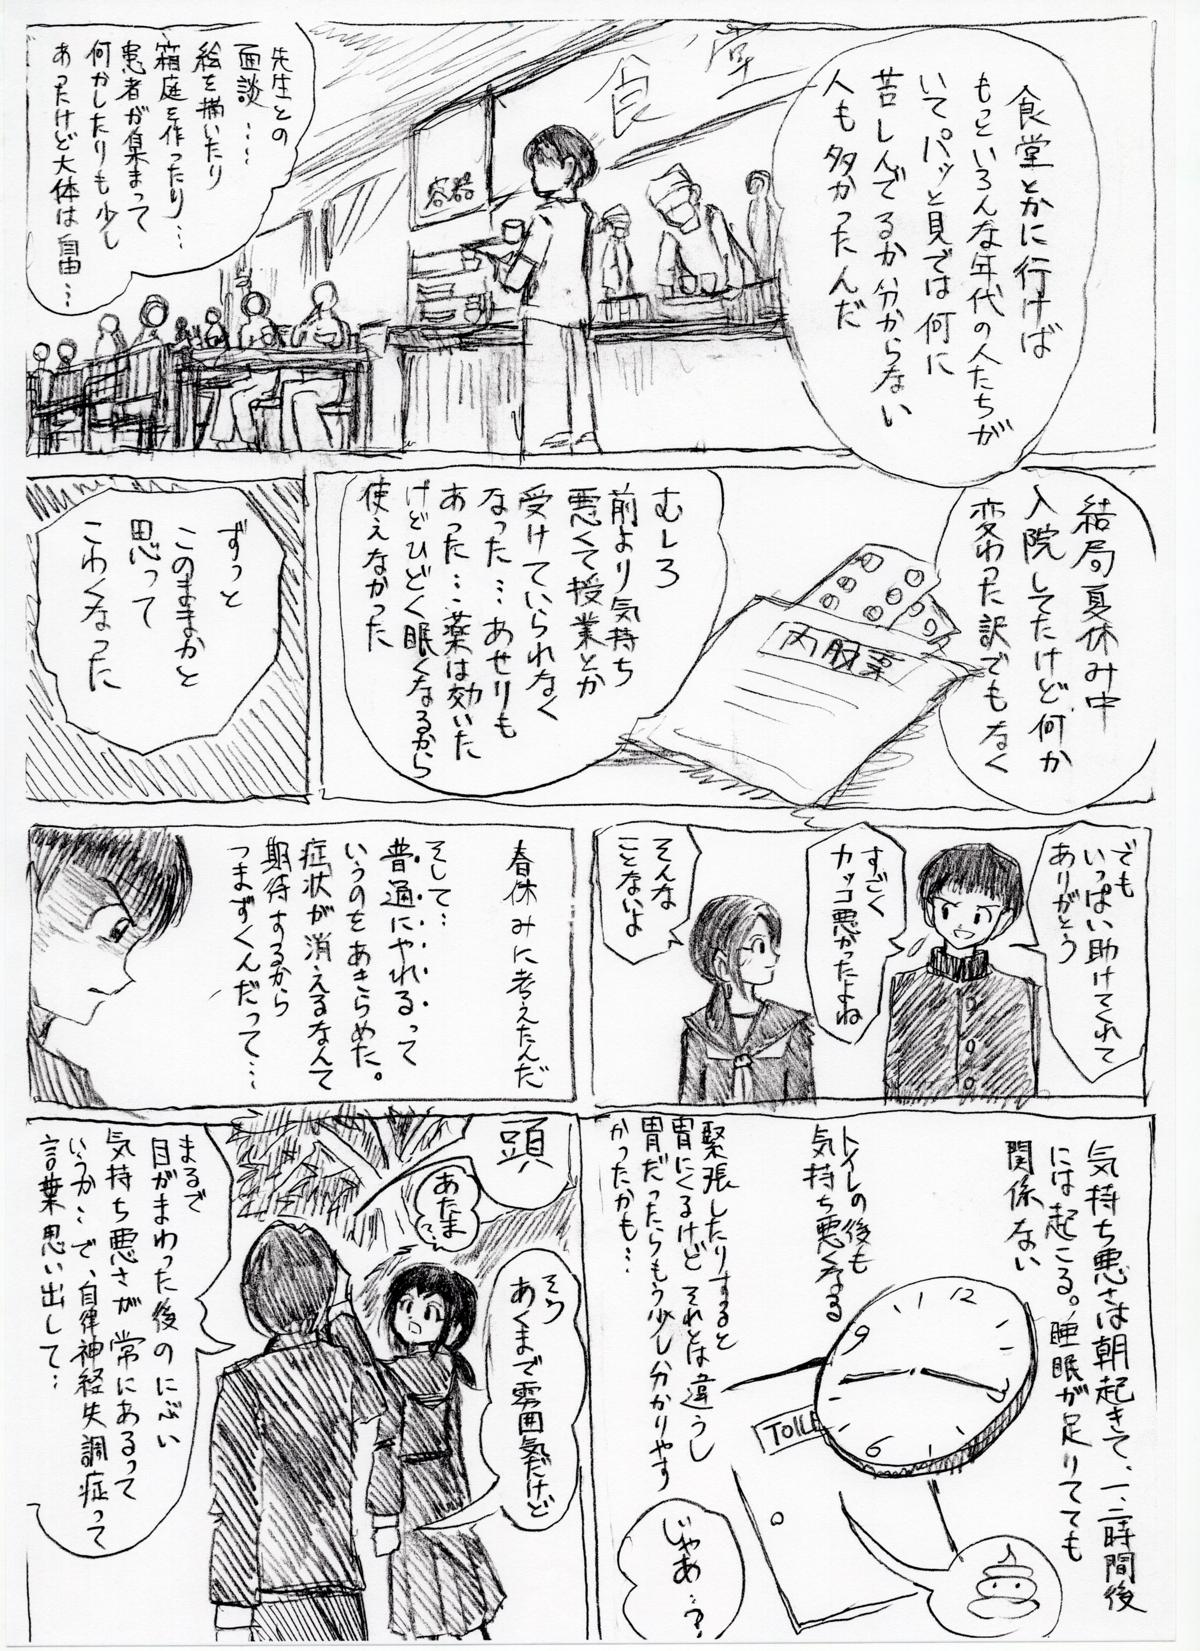 食堂とかに行けば
もっといろんな年代の人たちが
いてパッと見では何に
苦しんでるか分からない
人も多かったんだ
食堂
容器
先生との
面談……
絵を描いたり
箱庭を作ったり…
患者が集まって
何かしたりも少し
あったけど大体は自由…
結局夏休み中
入院してたけど何か
変わった訳でもなく
内服薬
むしろ
前より気持ち
悪くて授業とか
受けていられなく
なった…あせりも
あった…薬は効いた
けどひどく眠くなるから
使えなかった
ずっと
このままかと
思って
こわくなった
でも
いっぱい助けてくれて
ありがとう
すごく
カッコ悪かったよね
そんな
ことないよ
春休みに考えたんだ
そして…
普通にやれるって
いうのをあきらめた。
症状が消えるなんて
期待するから
つまずくんだって…
気持ち悪さは朝起きて、一、二時間後
には起こる。睡眠が足りてても
関係ない
トイレの後も
気持ち悪くなる
緊張したりすると
胃にくるけどそれとは違うし
胃だったらもう少し分かりやす
かったかも…
12
9
3
6
TOILE
じゃあ…?
頭
あたま…?
そう
あくまで雰囲気だけど
まるで
目がまわった後のにぶい
気持ち悪さが常にあるって
いうか…で、自律神経失調症って
言葉思い出して…